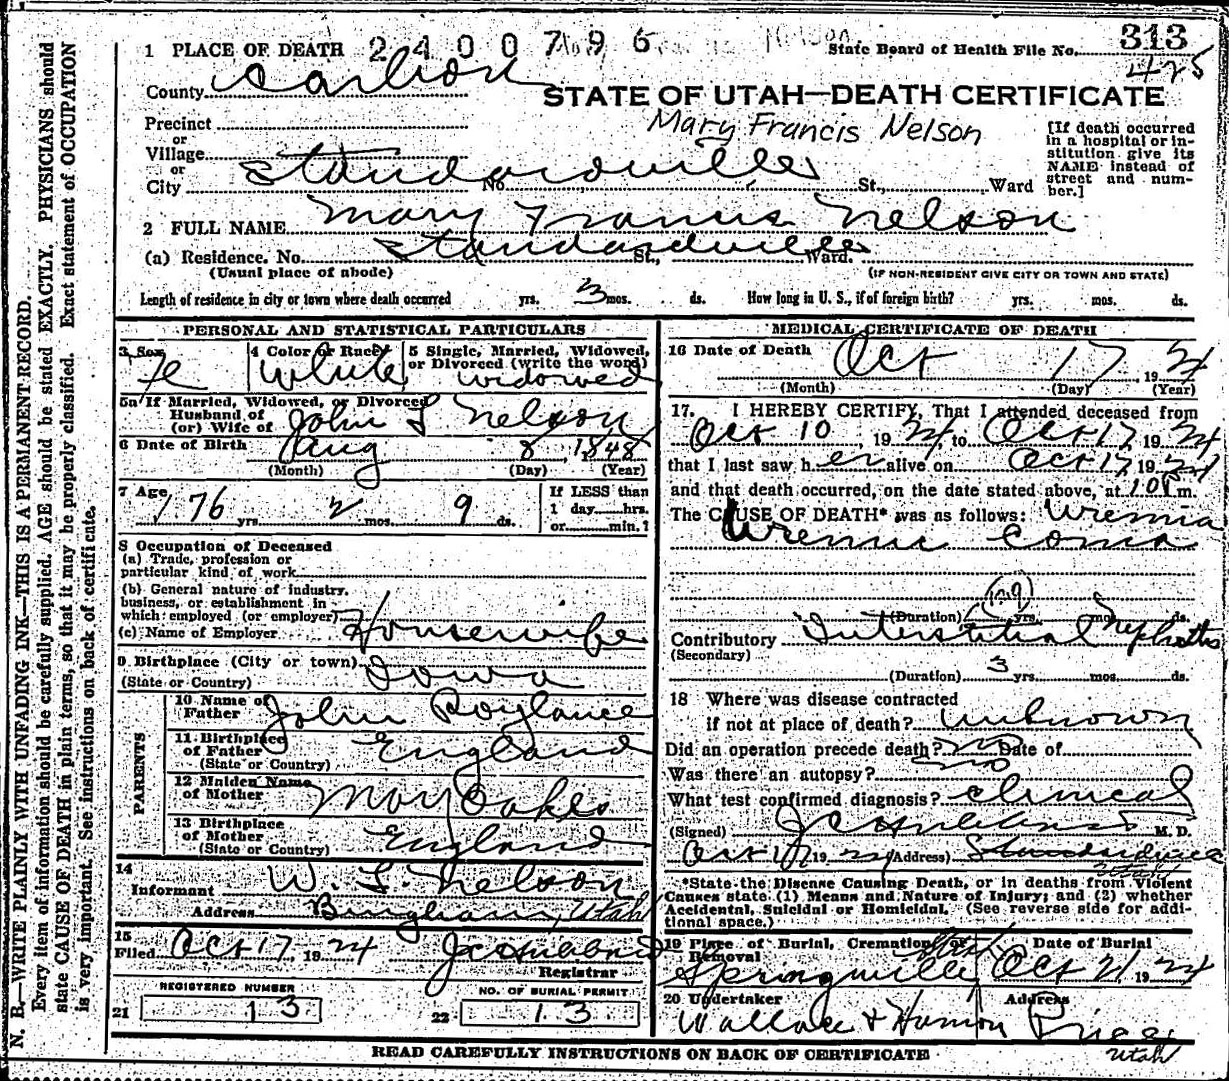 N. B.—WRITE PLAINLY WITH UNFADING INK—THIS IS A PERMANENT RECORD.
Every item of information should be carefully supplied. AGE should be stated EXACTLY. PHYSICIANS should
state CAUSE OF DEATH in plain terms, so that it may be properly classified. Exact statement of OCCUPATION
is very important. See instructions on back of certificate.
1 PLACE OF DEATH 2400796
State Board of Health File No. 313
425
County Carbon
STATE OF UTAH—DEATH CERTIFICATE
Mary Francis Nelson
Precinct
or
Village
or
City Standardville No. St., Ward
[If death occurred
in a hospital or in-
stitution give its
NAME instead of
street and num-
ber.]
2 FULL NAME Mary Francis Nelson
(a) Residence. No. Standardville St., Ward.
(Usual place of abode) (IF NON-RESIDENT GIVE CITY OR TOWN AND STATE)
Length of residence in city or town where death occurred yrs. 3 mos. ds. How long in U. S., if of foreign birth? yrs. mos. ds.
PERSONAL AND STATISTICAL PARTICULARS
3 Sex Fe
4 Color or Race White
5 Single, Married, Widowed,
or Divorced (write the word)
widowed
5a If Married, Widowed, or Divorced
Husband of
(or) Wife of John L Nelson
6 Date of Birth Aug 8 1848
(Month) (Day) (Year)
7 Age 76 yrs 2 mos. 9 ds.
If LESS than
1 day hrs.
or min.?
8 Occupation of Deceased
(a) Trade, profession or
particular kind of work
(b) General nature of industry,
business, or establishment in
which employed (or employer)
(c) Name of Employer Housewife
9 Birthplace (City or town)
(State or Country) Iowa
PARENTS
10 Name of
Father John Roylance
11 Birthplace
of Father England
(State or Country)
12 Maiden Name
of Mother Mary Oakes
13 Birthplace
of Mother England
(State or Country)
14
Informant W. L. Nelson
Address Bingham, Utah
15
Filed Oct 17 1924 J C Hubbard
Registrar
REGISTERED NUMBER
21 13
NO. OF BURIAL PERMIT
22 13
MEDICAL CERTIFICATE OF DEATH
16 Date of Death Oct 17 1924
(Month) (Day) (Year)
17. I HEREBY CERTIFY, That I attended deceased from
Oct 10 1924 to Oct 17 1924
that I last saw her alive on Oct 17 1924
and that death occurred, on the date stated above, at 10 m.
The CAUSE OF DEATH* was as follows: Uremia
Uremic Coma
(Duration) yrs. mos. ds.
Contributory Interstitial Nephritis
(Secondary)
(Duration) 3 yrs. mos. ds.
18 Where was disease contracted
if not at place of death? unknown
Did an operation precede death? no Date of
Was there an autopsy? no
What test confirmed diagnosis? Clinical
(Signed) J C Hubbard M. D.
Oct 17 1924 (Address) Standardville
Utah
*State the Disease Causing Death, or in deaths from Violent
Causes state (1) Means and Nature of Injury; and (2) whether
Accidental, Suicidal or Homicidal. (See reverse side for addi-
tional space.)
19 Place of Burial, Cremation or
Removal
Springville Utah
Date of Burial
Oct 21 1924
20 Undertaker Address
Wallace & Harmon Price
Utah
READ CAREFULLY INSTRUCTIONS ON BACK OF CERTIFICATE